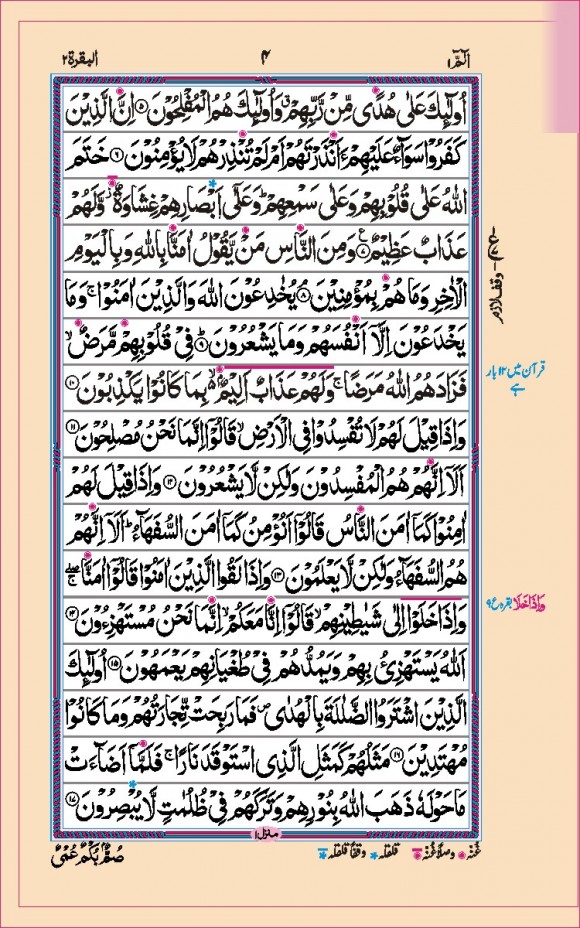 الٓمّٓ ۱
۴
البقرة ۲
اُولٰٓئِكَ عَلٰى هُدًى مِّنْ رَّبِّهِمْ ۙ وَاُولٰٓئِكَ هُمُ الْمُفْلِحُوْنَ ۵ اِنَّ الَّذِيْنَ
كَفَرُوْا سَوَآءٌ عَلَيْهِمْ ءَاَنْذَرْتَهُمْ اَمْ لَمْ تُنْذِرْهُمْ لَا يُؤْمِنُوْنَ ۶ خَتَمَ
اللّٰهُ عَلٰى قُلُوْبِهِمْ وَعَلٰى سَمْعِهِمْ ؕ وَعَلٰٓى اَبْصَارِهِمْ غِشَاوَةٌ ؗ وَّلَهُمْ
عَذَابٌ عَظِيْمٌ ۷ ع وَمِنَ النَّاسِ مَنْ يَّقُوْلُ اٰمَنَّا بِاللّٰهِ وَبِالْيَوْمِ
الْاٰخِرِ وَمَا هُمْ بِمُؤْمِنِيْنَ ۘ ۸ يُخٰدِعُوْنَ اللّٰهَ وَالَّذِيْنَ اٰمَنُوْا ۚ وَمَا
يَخْدَعُوْنَ اِلَّآ اَنْفُسَهُمْ وَمَا يَشْعُرُوْنَ ؕ ۹ فِيْ قُلُوْبِهِمْ مَّرَضٌ ۙ
فَزَادَهُمُ اللّٰهُ مَرَضًا ۚ وَلَهُمْ عَذَابٌ اَلِيْمٌۢ ۙ بِمَا كَانُوْا يَكْذِبُوْنَ ۱۰
وَاِذَا قِيْلَ لَهُمْ لَا تُفْسِدُوْا فِي الْاَرْضِ ۙ قَالُوْٓا اِنَّمَا نَحْنُ مُصْلِحُوْنَ ۱۱
اَلَآ اِنَّهُمْ هُمُ الْمُفْسِدُوْنَ وَلٰكِنْ لَّا يَشْعُرُوْنَ ۱۲ وَاِذَا قِيْلَ لَهُمْ
اٰمِنُوْا كَمَآ اٰمَنَ النَّاسُ قَالُوْٓا اَنُؤْمِنُ كَمَآ اٰمَنَ السُّفَهَآءُ ؕ اَلَآ اِنَّهُمْ
هُمُ السُّفَهَآءُ وَلٰكِنْ لَّا يَعْلَمُوْنَ ۱۳ وَاِذَا لَقُوا الَّذِيْنَ اٰمَنُوْا قَالُوْٓا اٰمَنَّا ۖۚ
وَاِذَا خَلَوْا اِلٰى شَيٰطِيْنِهِمْ ۙ قَالُوْٓا اِنَّا مَعَكُمْ ۙ اِنَّمَا نَحْنُ مُسْتَهْزِءُوْنَ ۱۴
اَللّٰهُ يَسْتَهْزِئُ بِهِمْ وَيَمُدُّهُمْ فِيْ طُغْيَانِهِمْ يَعْمَهُوْنَ ۱۵ اُولٰٓئِكَ
الَّذِيْنَ اشْتَرَوُا الضَّلٰلَةَ بِالْهُدٰى ۪ فَمَا رَبِحَتْ تِّجَارَتُهُمْ وَمَا كَانُوْا
مُهْتَدِيْنَ ۱۶ مَثَلُهُمْ كَمَثَلِ الَّذِي اسْتَوْقَدَ نَارًا ۚ فَلَمَّآ اَضَآءَتْ
مَا حَوْلَهٗ ذَهَبَ اللّٰهُ بِنُوْرِهِمْ وَتَرَكَهُمْ فِيْ ظُلُمٰتٍ لَّا يُبْصِرُوْنَ ۱۷
وقف لازم
قرآن میں ۱۲ بار
ہے
وَاِذَا خَلَا بقره ع۹
منزل ۱
غُنّہ وصلاً غُنّہ قلقلہ وقفاً قلقلہ
صُمٌّۢ بُكْمٌ عُمْيٌ